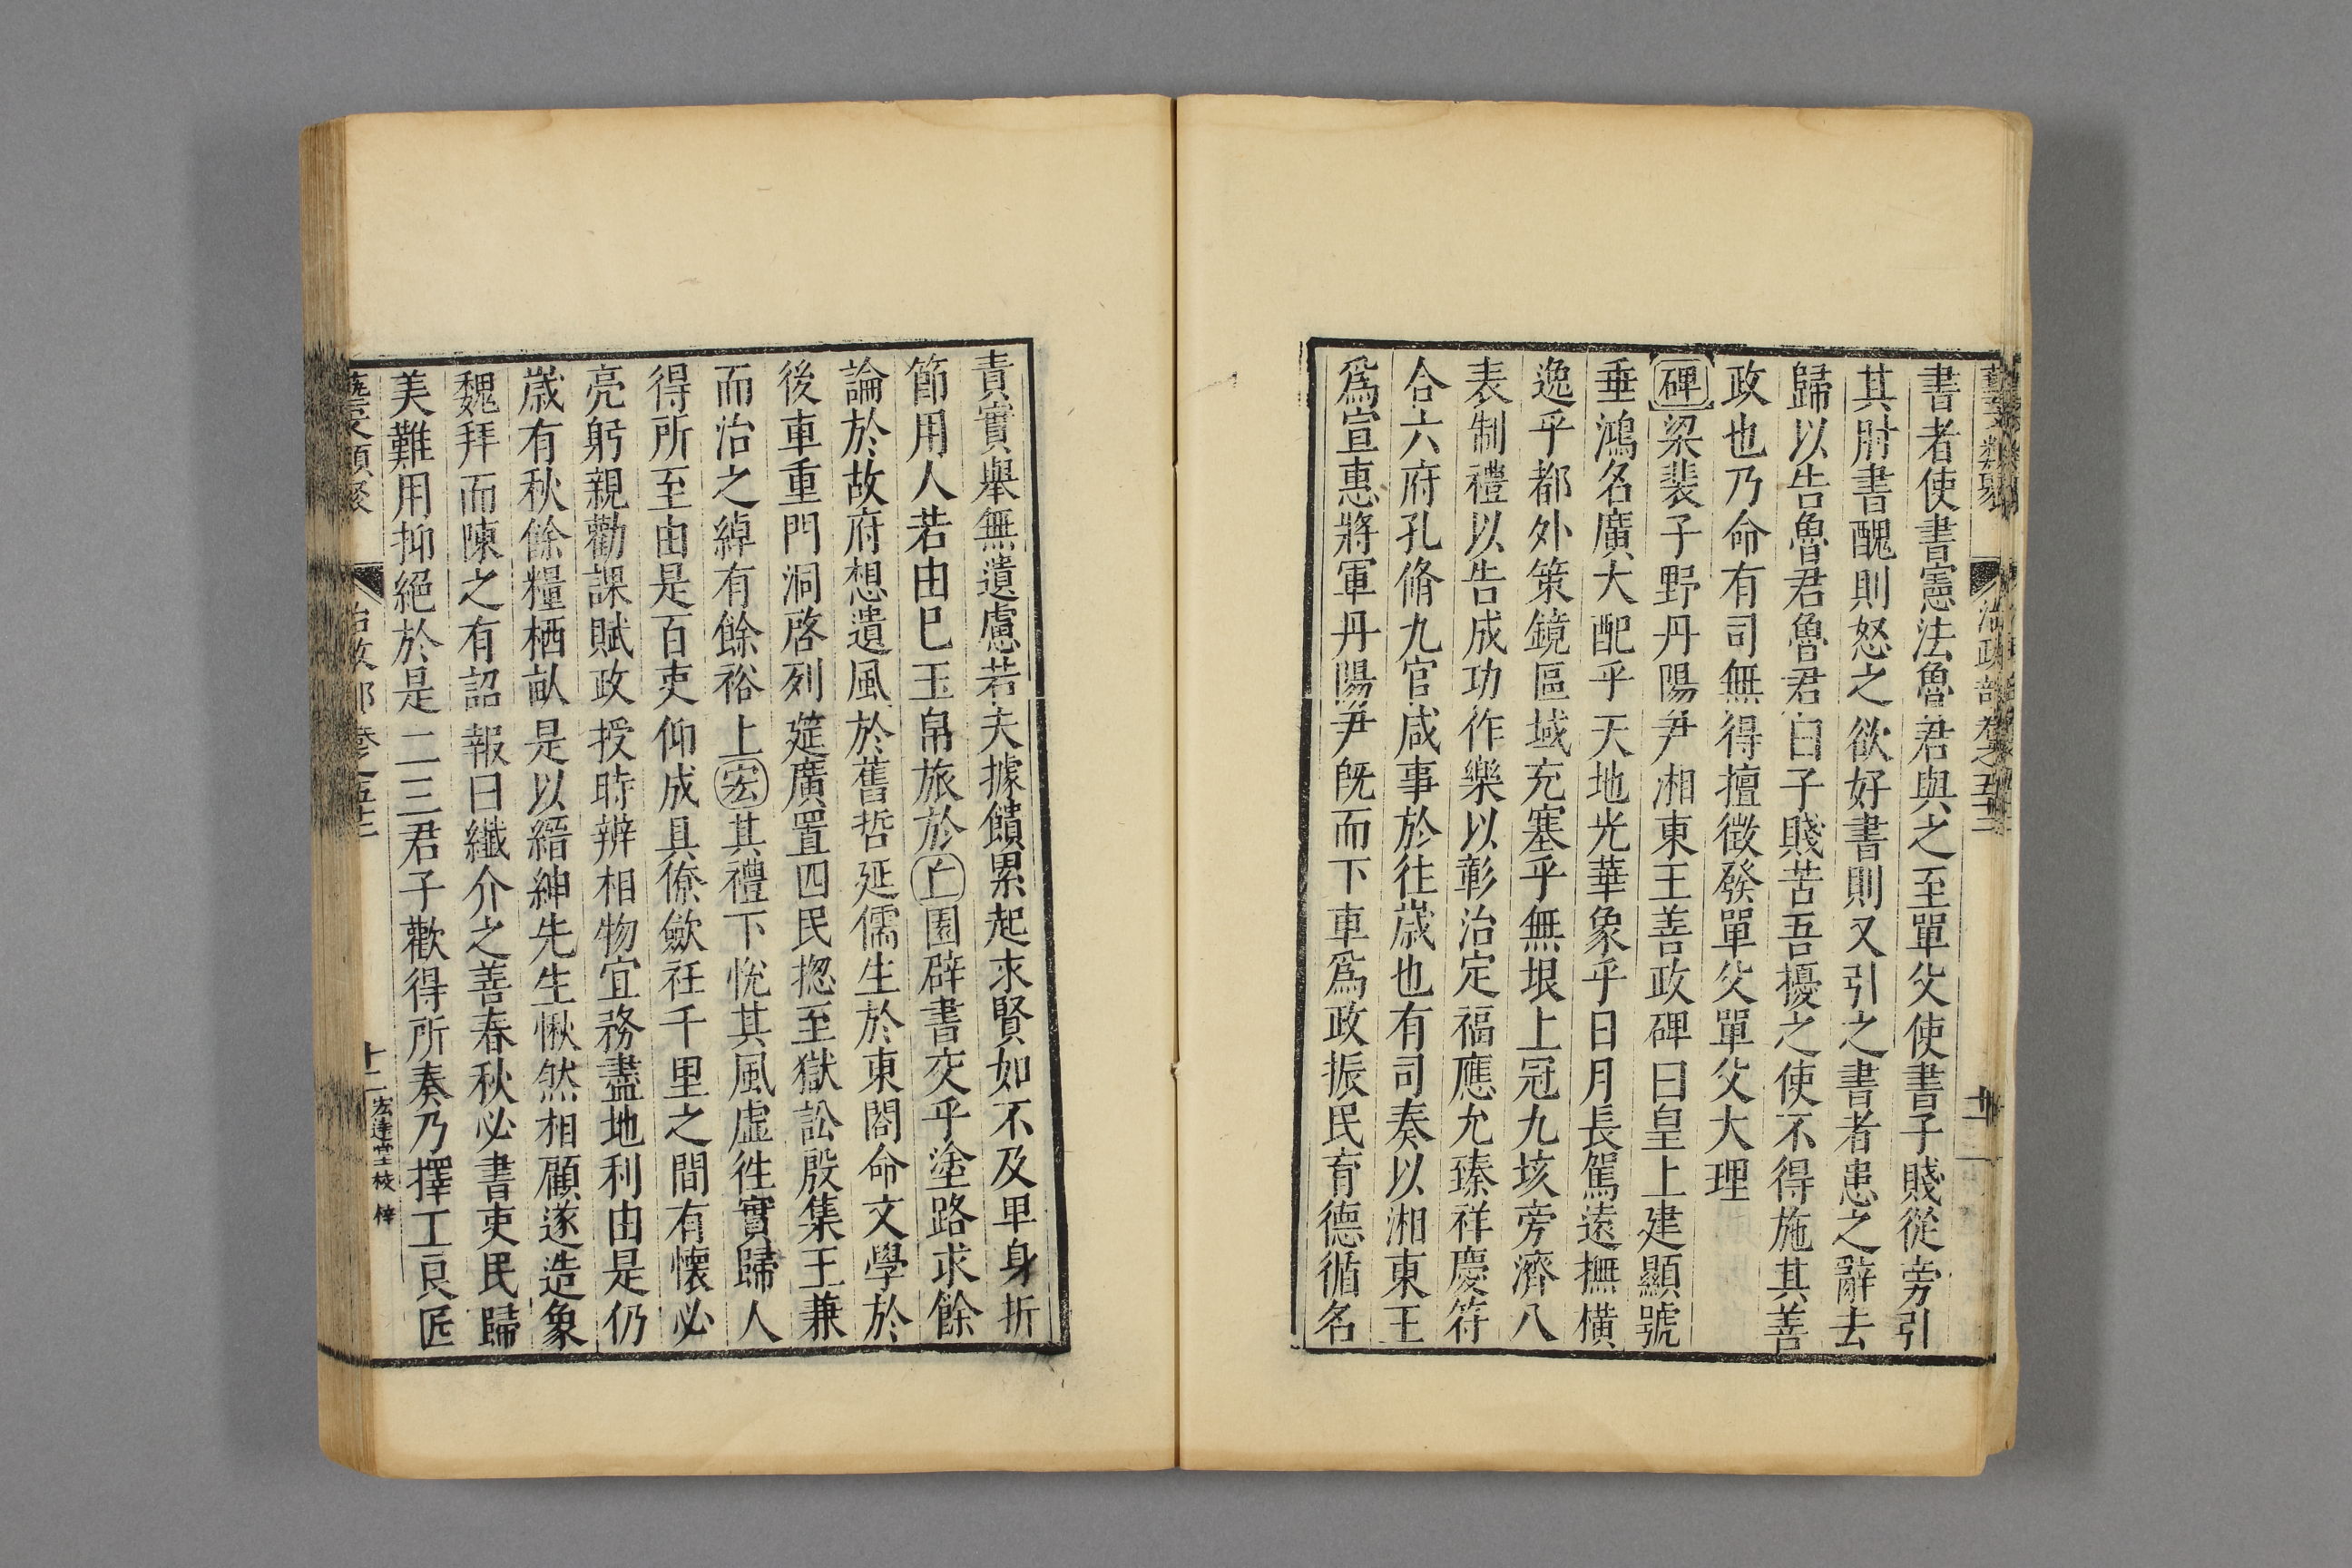 藝文類聚 治政部卷之五十二 十一
書者使書憲法魯君與之至單父使書子賤從旁引
其肘書醜則怒之欲好書則又引之書者患之辭去
歸以告魯君魯君曰子賤苦吾擾之使不得施其善
政也乃命有司無得擅徵發單父單父大理
碑梁裴子野丹陽尹湘東王善政碑曰皇上建顯號
垂鴻名廣大配乎天地光華象乎日月長駕遠撫橫
逸乎都外策鏡區域充塞乎無垠上冠九垓旁濟八
表制禮以告成功作樂以彰治定福應允臻祥慶符
合六府孔脩九官咸事於往歲也有司奏以湘東王
為宣惠將軍丹陽尹既而下車為政振民育德循名
責實舉無遺慮若夫據饋累起求賢如不及卑身折
節用人若由巳玉帛旅於丘園辟書交乎塗路求餘
論於故府想遺風於舊哲延儒生於東閤命文學於
後車重門洞啓列筵廣置四民揔至獄訟殷集王兼
而治之綽有餘裕上宏其禮下悅其風虛往實歸人
得所至由是百吏仰成具僚斂衽千里之間有懷必
亮躬親勸課賦政授時辨相物宜務盡地利由是仍
歲有秋餘糧栖畝是以縉紳先生愀然相顧遂造象
魏拜而陳之有詔報曰纖介之善春秋必書吏民歸
美難用抑絕於是二三君子歡得所奏乃擇工良匠
藝文類聚 治政部卷之五十二 十二 宏達堂校梓